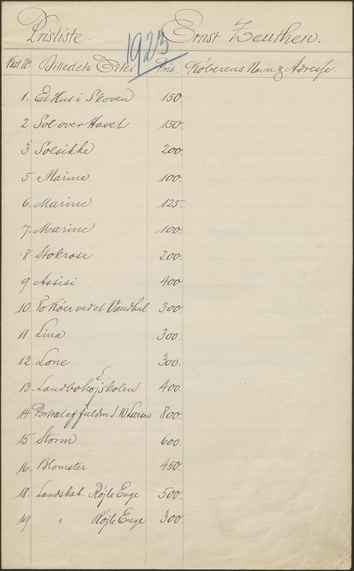 Prisliste Ernst Zeuthen.
1923
Kat. Nr. Billedets Titel Pris Køberens Navn & Adresse
1. Et Hus i Skoven 150.
2 Sol over Havet 150.
3 Solsikke 200.
5 Marine 100.
6. Marine 125.
7. Marine 100.
8 Stokrose 200.
9 Assisi 400.
10. To Køer ved et Vandhul 300.
11 Lina 300.
12 Lone 300.
13. Landbohøjskolen 400.
14 800.
15 Storm 600.
16. Blomster 450.
18. Landskab. Køjle Enge 500.
19 " Køjle Enge 300.